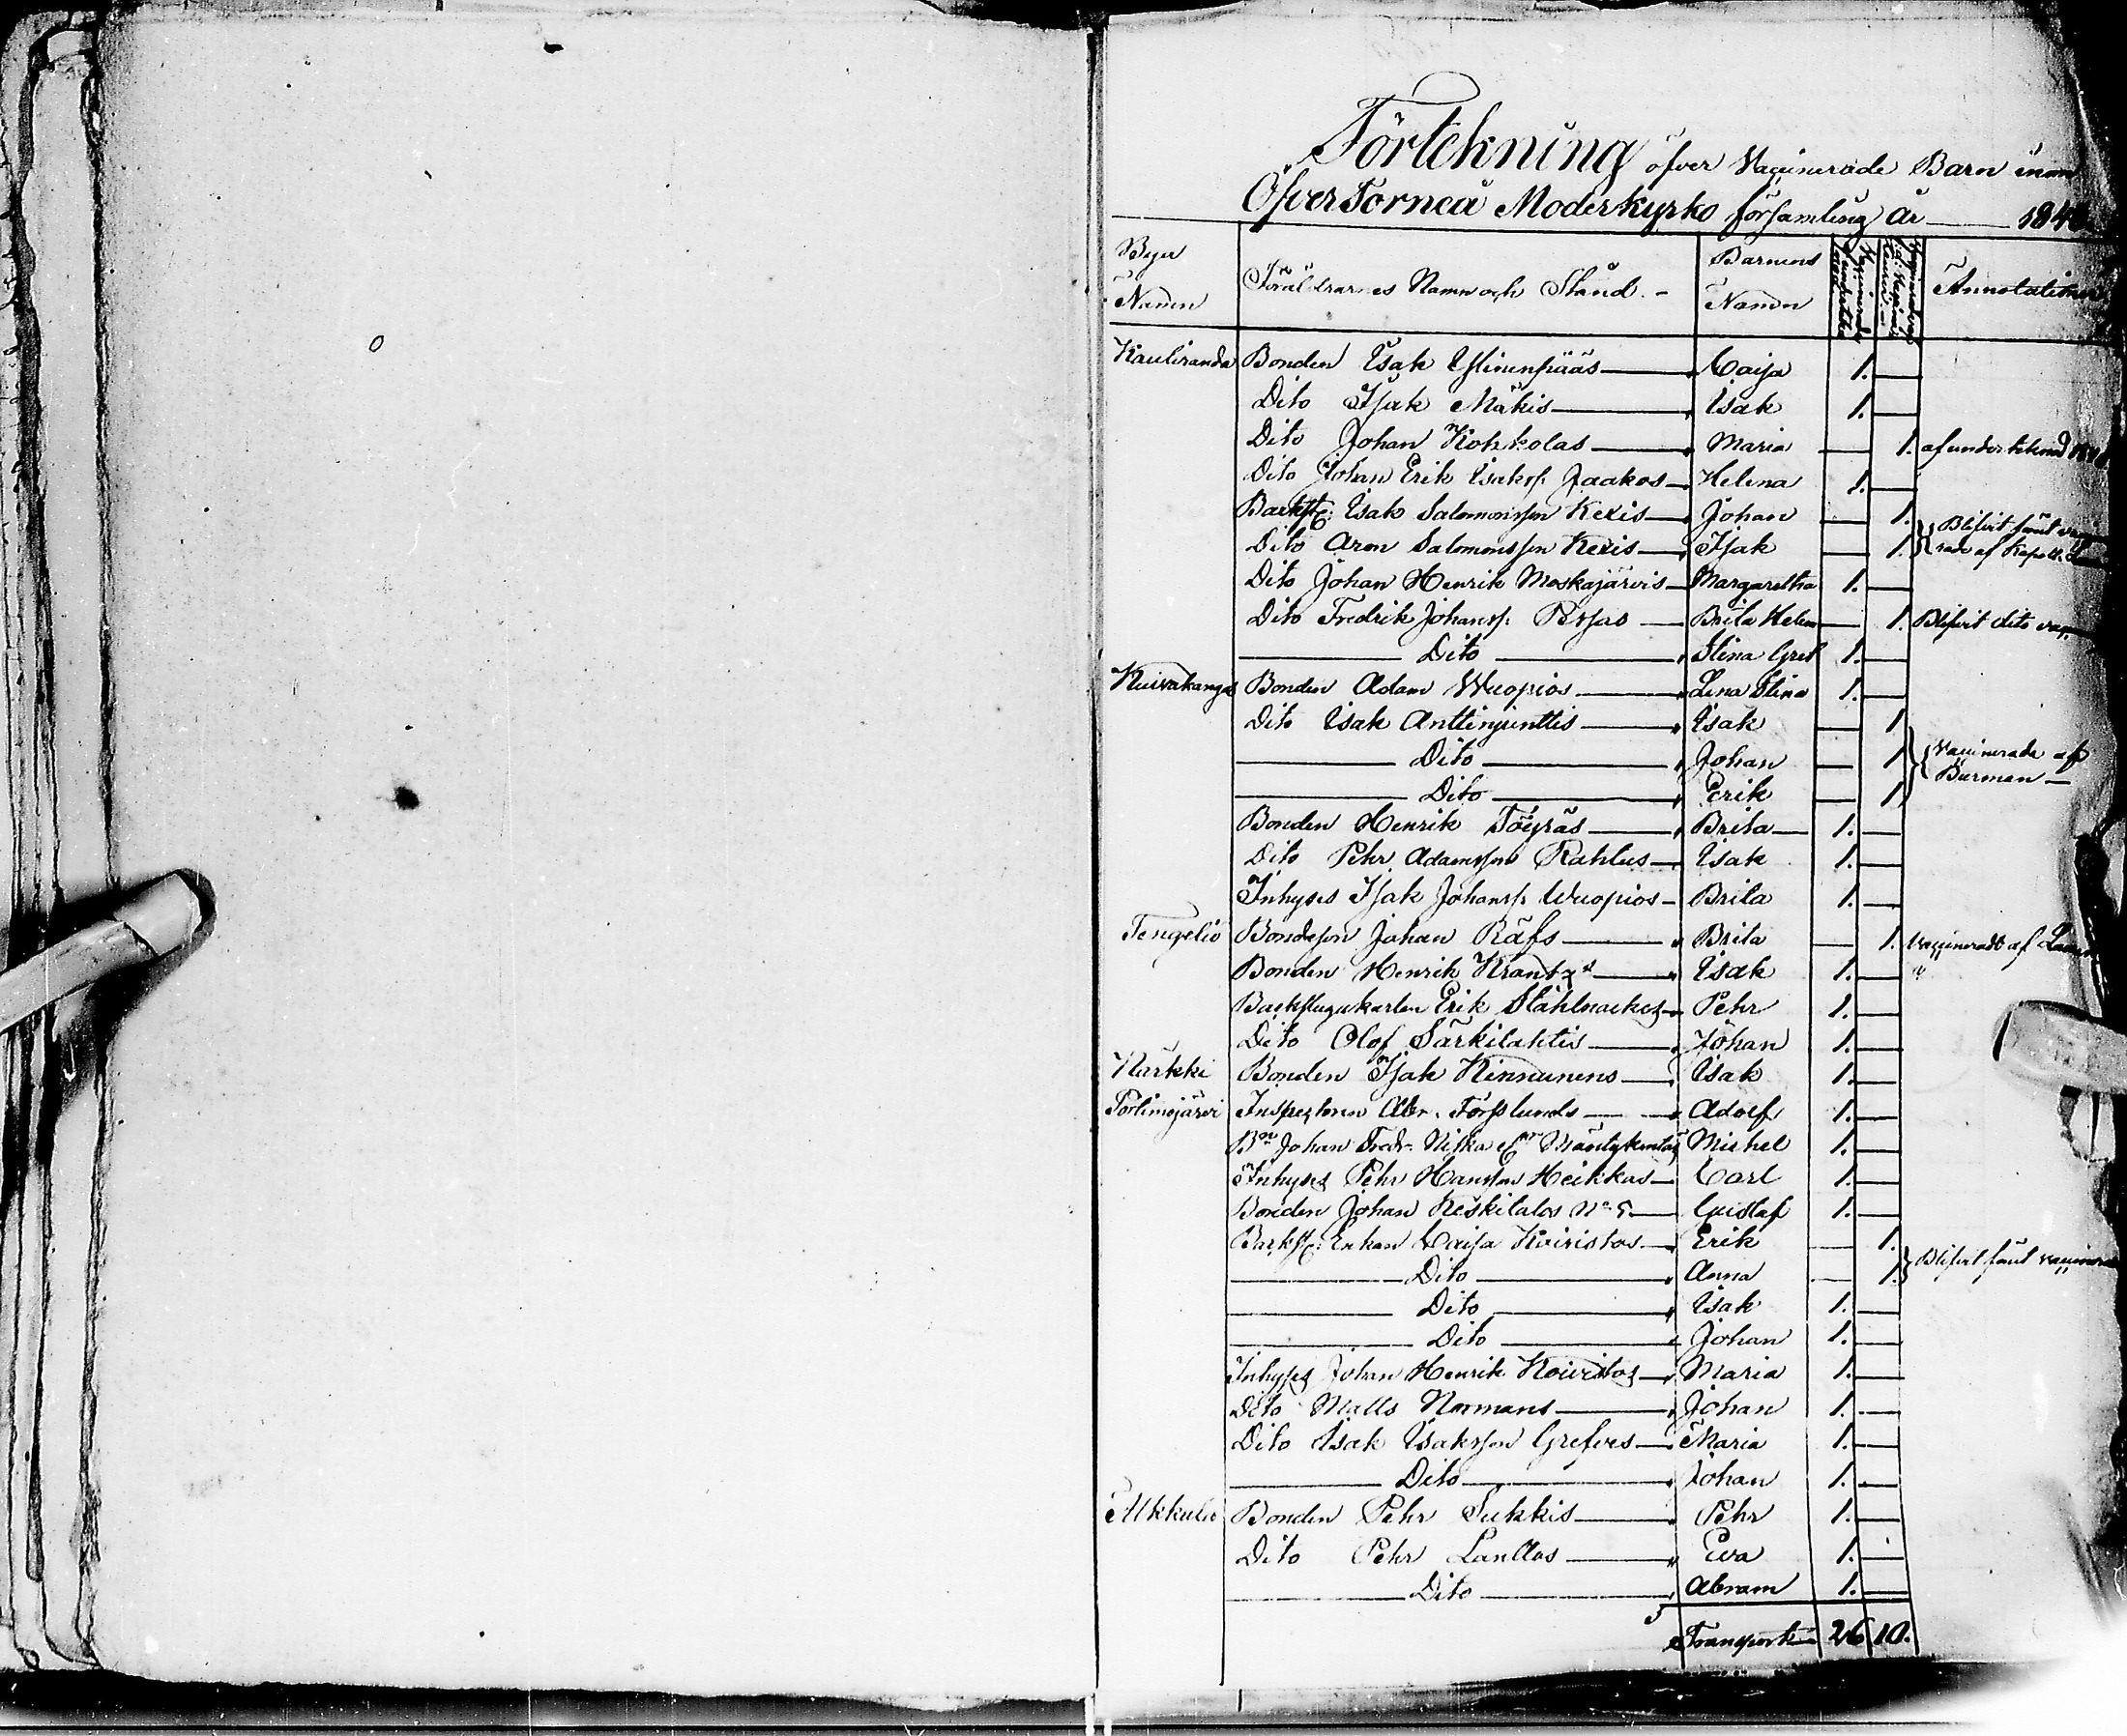 Förtekning öfver Vaccinerade Barn inom
Öfver Torneå Moderkyrko församling år 184
Byar Namn Föräldrarnes Namn och Stånd. Barnens Namn Annotationer
Kauliranda Bonden Isak Ylinenpääs Caisa 1.
Dito Isak Mäkis Isak 1.
Dito Johan Kohkolas Maria 1. af underteknad
Dito Johan Erik Isakss. Jaakos Helena 1.
Backst: Isak Salomonsson Kexis Johan 1. Blifvit förut
Dito Aron Salomonsson Kexis Isak 1. af Kapell.
Dito Johan Henrik Moskajärvis Margaretha 1.
Dito Fredrik Johanss. Pessas Brita Helena 1. Blifvit dito
Dito Stina Gret 1.
Kuivakangas Bonden Adam Wuopios Lena Stina 1.
Dito Isak Anttinpinttis Isak 1
Dito Johan 1 Vaccinerade af
Dito Erik 1 Burman
Bonden Henrik Töyräs Brita 1.
Dito Pehr Adamsson Rahtus Isak 1.
Inhyses Isak Johanss. Wuopios Brita 1.
Tengeliö Bondeson Johan Räfs Brita 1. Vaccineradt af
Bonden Henrik Krantz Isak 1.
Backstugukarlen Erik Ståhlnackes Pehr 1.
Dito Olof Särkilahtis Johan 1.
Närkki Bonden Isak Kinnunens Isak 1.
Portimojärvi Inspectoren Abr. Forsslunds Adolf 1.
Bn Johan Fredr. Niska Mäntykentäs Mickel 1.
Inhyses Pehr Hansson Heikkas Carl 1.
Bonden Johan Keskitalos No 5 Gustaf 1.
Backst: Enkan Caisa Koivistos Erik 1.
Dito Anna 1. Blifvit förut
Dito Isak 1.
Dito Johan 1.
Inhyses Johan Henrik Koivistos Maria 1.
Dito Matts Normans Johan 1.
Dito Isak Isaksson Grefves Maria 1.
Dito Johan 1.
Alkkula Bonden Pehr Sukkis Pehr 1.
Dito Pehr Lanttos Eva 1.
Dito Abram 1.
Transport 26 10.